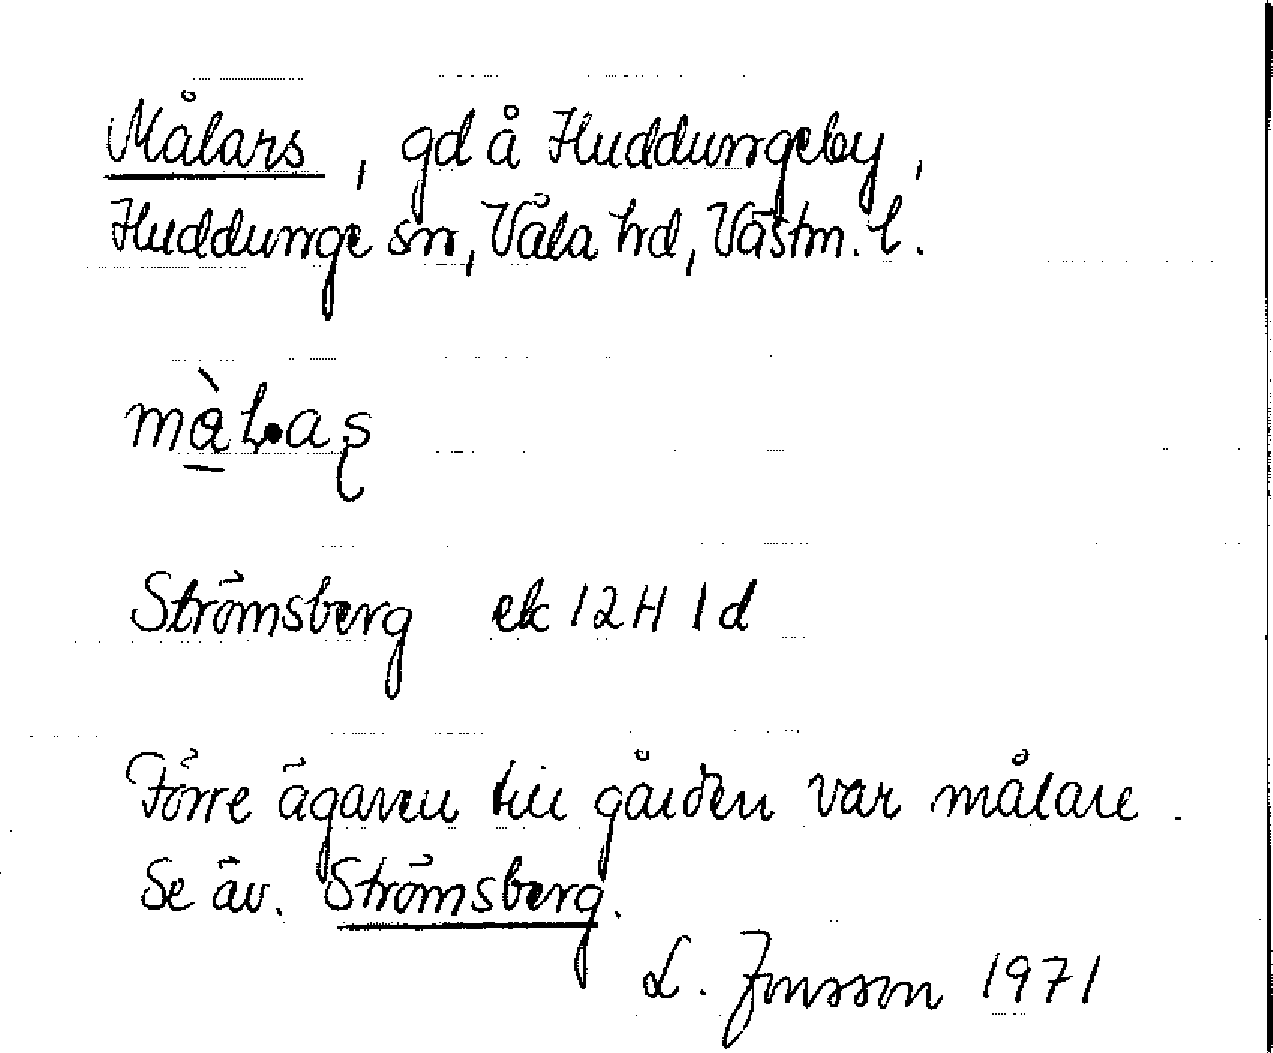 Målars, gd å Huddungeby,
Huddunge sn, Våla hd, Västm. l.
màl·aş
Strömsberg ek 12H 1d
Förre ägaren till gården var målare.
Se äv. Strömsberg.
L. Jonsson 1971